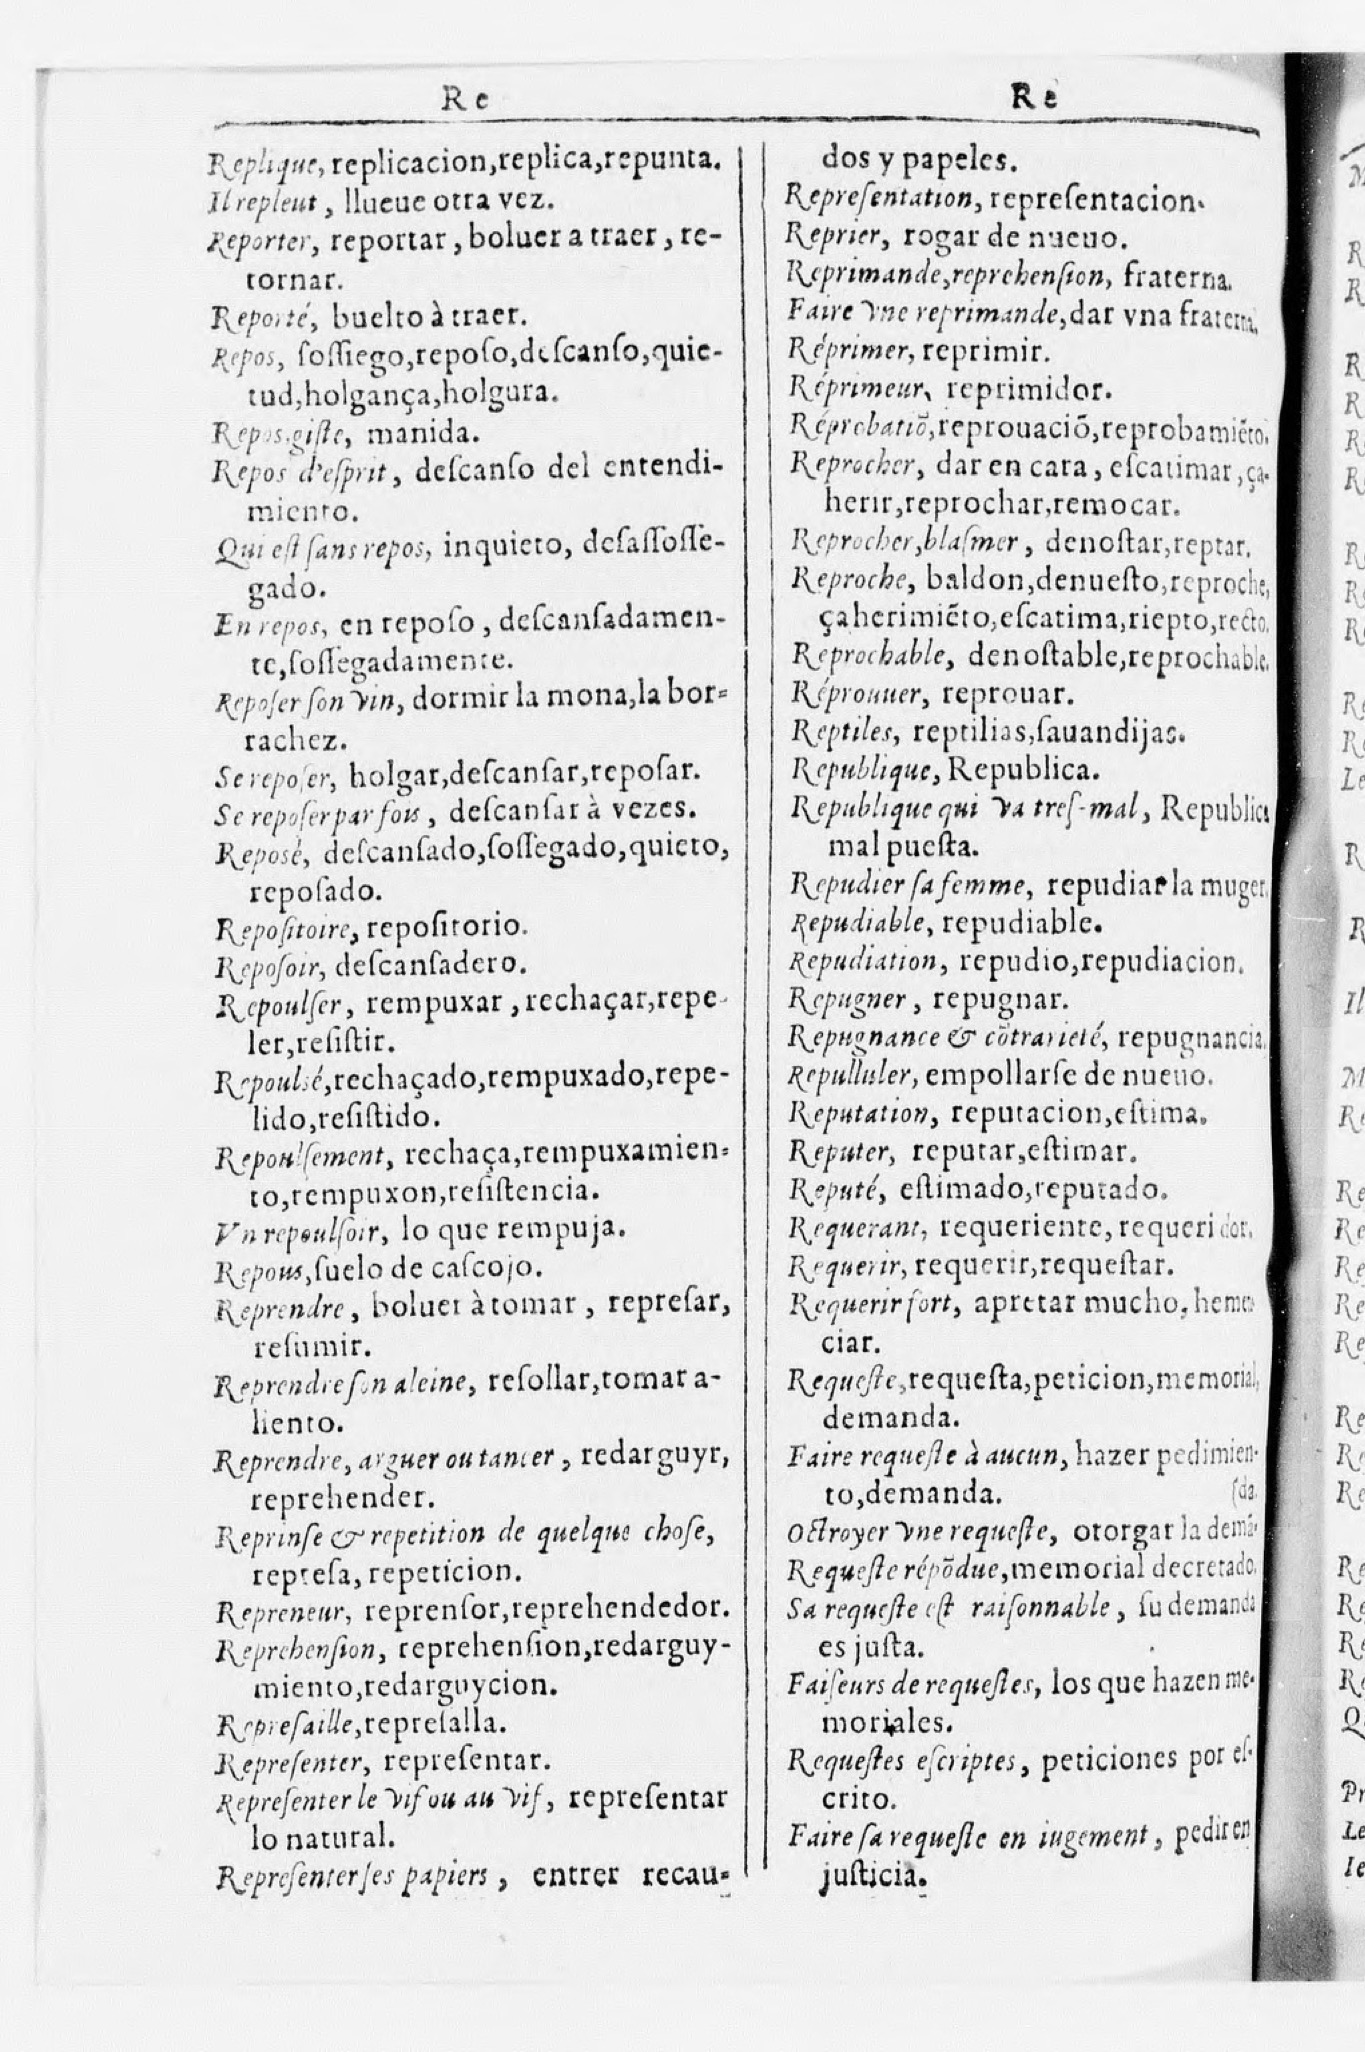 Re
Replique, replicacion,replica,repunta.
Il repleut, llueue otra vez.
Reporter, reportar, boluer a traer, re-
tornar.
Reporté, buelto à traer.
Repos, sossiego,reposo,descanso,quie-
tud,holgança,holgura.
Repos,giste, manida.
Repos d'esprit, descanso del entendi-
miento.
Qui est sans repos, inquieto, desassosse-
gado.
En repos, en reposo, descansadamen-
te,sossegadamente.
Reposer son vin, dormir la mona,la bor-
rachez.
Se reposer, holgar,descansar,reposar.
Se reposer par fois, descansar à vezes.
Reposé, descansado,sossegado,quieto,
reposado.
Repositoire, repositorio.
Reposoir, descansadero.
Repoulser, rempuxar, rechaçar,repe-
ler,resistir.
Repoulsé,rechaçado,rempuxado,repe-
lido,resistido.
Repoulsement, rechaça,rempuxamien-
to,rempuxon,resistencia.
Vn repoulsoir, lo que rempuja.
Repous,suelo de cascojo.
Reprendre, boluer à tomar, represar,
resumir.
Reprendre son aleine, resollar,tomar a-
liento.
Reprendre, arguer ou tancer, redarguyr,
reprehender.
Reprinse & repetition de quelque chose,
represa, repeticion.
Repreneur, reprensor,reprehendedor.
Reprehension, reprehension,redarguy-
miento,redarguycion.
Represaille,represalla.
Representer, representar.
Representer le vif ou au vif, representar
lo natural.
Representer ses papiers, entrer recau-
Re
dos y papeles.
Representation, representacion.
Reprier, rogar de nueuo.
Reprimande,reprehension, fraterna.
Faire vne reprimande,dar vna fraterna.
Réprimer, reprimir.
Réprimeur, reprimidor.
Réprobatiõ,reprouaciõ,reprobamiẽto.
Reprocher, dar en cara, escatimar, ça-
herir,reprochar,remocar.
Reprocher,blasmer, denostar,reptar.
Reproche, baldon,denuesto,reproche,
çaherimiẽto,escatima,riepto,recto.
Reprochable, denostable,reprochable.
Réprouuer, reprouar.
Reptiles, reptilias,sauandijas.
Republique, Republica.
Republique qui va tres-mal, Republica
mal puesta.
Repudier sa femme, repudiar la muger.
Repudiable, repudiable.
Repudiation, repudio,repudiacion.
Repugner, repugnar.
Repugnance & cõtrarieté, repugnancia.
Repulluler, empollarse de nueuo.
Reputation, reputacion,estima.
Reputer, reputar,estimar.
Reputé, estimado,reputado.
Requerant, requeriente, requeridor.
Requerir, requerir,requestar.
Requerir fort, apretar mucho, heme-
ciar.
Requeste,requesta,peticion,memorial,
demanda.
Faire requeste à aucun, hazer pedimien-
to,demanda. (da.
Octroyer vne requeste, otorgar la demã-
Requeste répõdue,memorial decretado.
Sa requeste est raisonnable, su demanda
es justa.
Faiseurs de requestes, los que hazen me-
moriales.
Requestes escriptes, peticiones por es-
crito.
Faire sa requeste en iugement, pedir en
justicia.